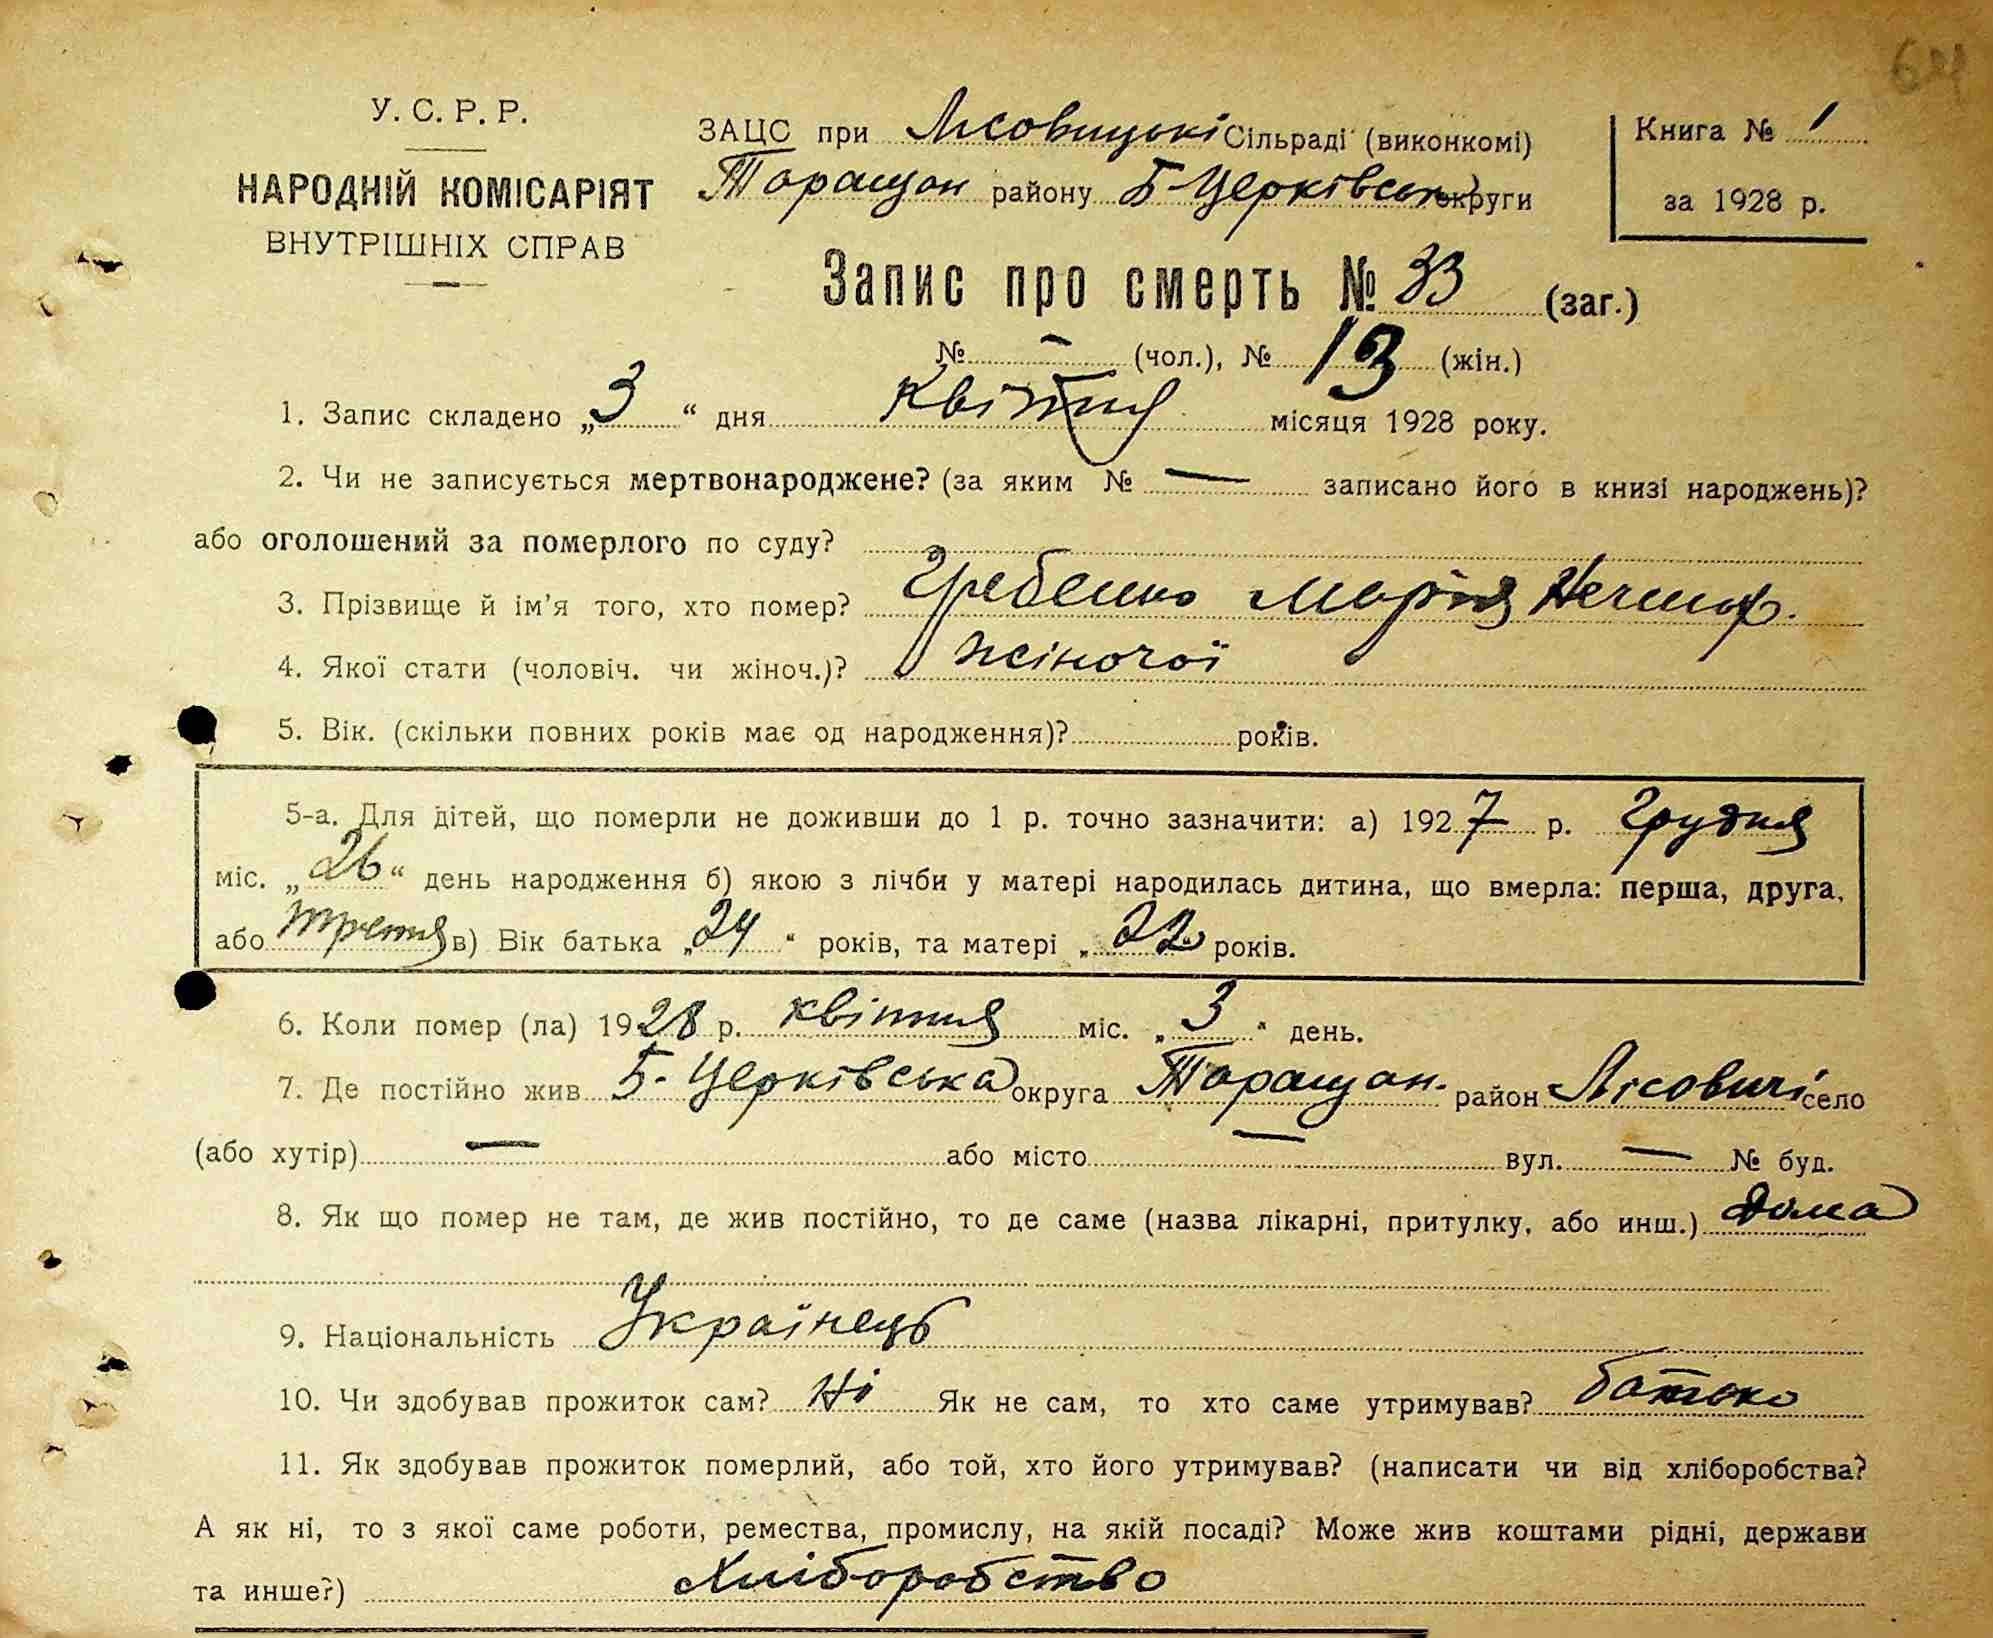 64
У. С. Р. Р.
НАРОДНІЙ КОМІСАРІЯТ
ВНУТРІШНІХ СПРАВ
ЗАЦС при Лісовицькі Сільраді (виконкомі)
Таращан району Б-Церківськ округи
Книга № 1
за 1928 р.
Запис про смерть № 33 (заг.)
№ — (чол.), № 13 (жін.)
1. Запис складено „3“ дня Квітня місяця 1928 року.
2. Чи не записується мертвонароджене? (за яким № — записано його в книзі народжень)?
або оголошений за померлого по суду?
3. Прізвище й ім’я того, хто помер? Гребенко Марія Нечипор.
4. Якої стати (чоловіч. чи жіноч.)? жіночої
5. Вік. (скільки повних років має од народження)? років.
5-а. Для дітей, що померли не доживши до 1 р. точно зазначити: а) 1927 р. Грудня
міс. „26“ день народження б) якою з лічби у матері народилась дитина, що вмерла: перша, друга,
або третя в) Вік батька „24“ років, та матері „22 років.
6. Коли помер (ла) 1928 р. квітня міс. „3“ день.
7. Де постійно жив Б-Церківська округа Таращан. район Лісовичі село
(або хутір) — або місто — вул. — № буд.
8. Як що помер не там, де жив постійно, то де саме (назва лікарні, притулку, або инш.) дома
9. Національність Українець
10. Чи здобував прожиток сам? Ні Як не сам, то хто саме утримував? батько
11. Як здобував прожиток померлий, або той, хто його утримував? (написати чи від хліборобства?
А як ні, то з якої саме роботи, ремества, промислу, на якій посаді? Може жив коштами рідні, держави
та инше?) Хліборобство